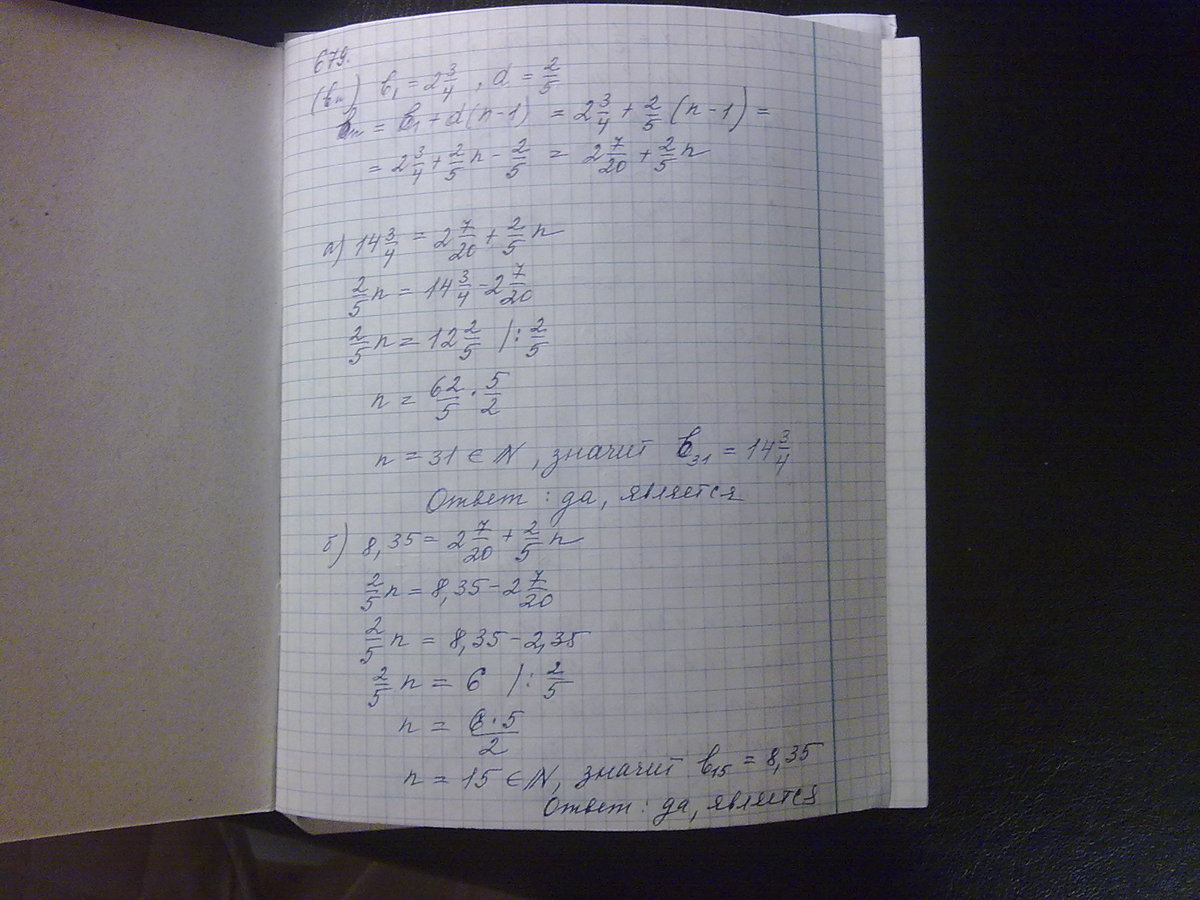 679.
(bₙ) b₁ = 2 3/4, d = 2/5
bₙ = b₁ + d(n-1) = 2 3/4 + 2/5 (n-1) =
= 2 3/4 + 2/5 n - 2/5 = 2 7/20 + 2/5 n
а) 14 3/4 = 2 7/20 + 2/5 n
2/5 n = 14 3/4 - 2 7/20
2/5 n = 12 2/5 |: 2/5
n = 62/5 · 5/2
n = 31 ∈ N, значит b₃₁ = 14 3/4
Ответ: да, является
б) 8,35 = 2 7/20 + 2/5 n
2/5 n = 8,35 - 2 7/20
2/5 n = 8,35 - 2,35
2/5 n = 6 |: 2/5
n = 6·5/2
n = 15 ∈ N, значит b₁₅ = 8,35
Ответ: да, является